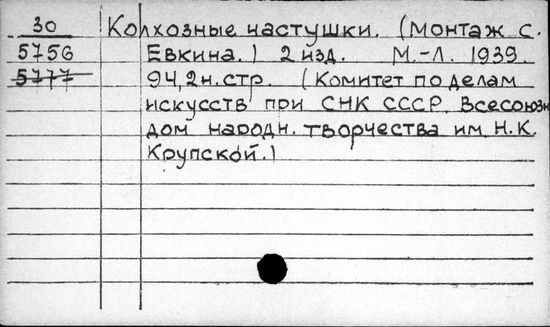 30 Колхозные частушки. (Монтаж с.
5756 Евкина.) 2 изд. М.-Л. 1939.
5777 94,2 н.стр. (Комитет по делам
искусств при СНК СССР. Всесоюзн
дом народн. творчества им. Н.К.
Крупской.)